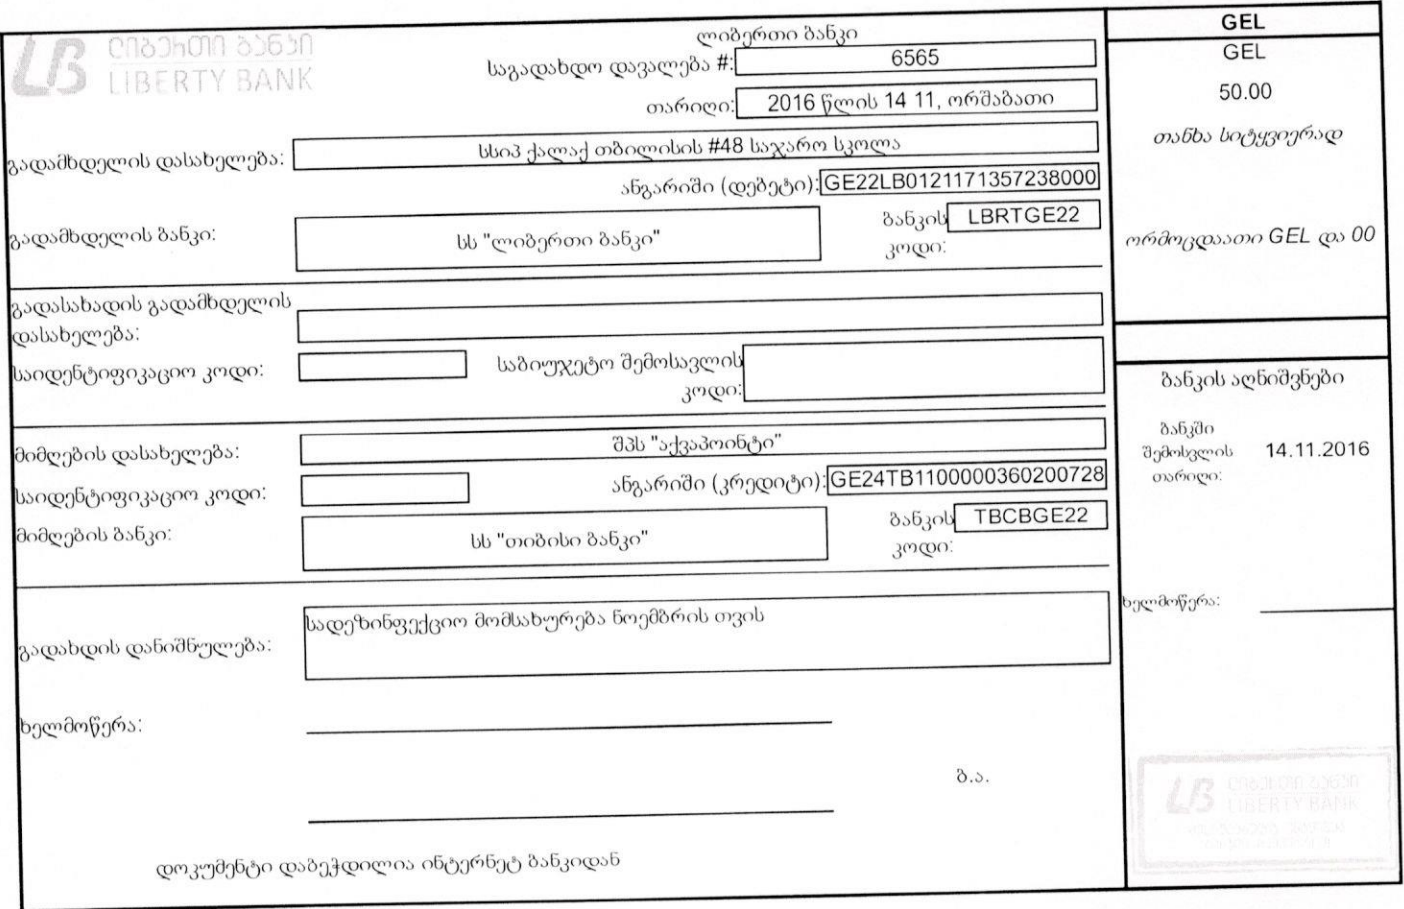 ლიბერთი ბანკი
LIBERTY BANK
ლიბერთი ბანკი
საგადახდო დავალება #: 6565
თარიღი: 2016 წლის 14 11, ორშაბათი
გადამხდელის დასახელება: სსიპ ქალაქ თბილისის #48 საჯარო სკოლა
ანგარიში (დებეტი): GE22LB0121171357238000
გადამხდელის ბანკი: სს "ლიბერთი ბანკი" ბანკის კოდი: LBRTGE22
გადასახადის გადამხდელის
დასახელება:
საიდენტიფიკაციო კოდი: საბიუჯეტო შემოსავლის
კოდი:
მიმღების დასახელება: შპს "აქვაპოინტი"
საიდენტიფიკაციო კოდი: ანგარიში (კრედიტი): GE24TB1100000360200728
მიმღების ბანკი: სს "თიბისი ბანკი" ბანკის კოდი: TBCBGE22
გადახდის დანიშნულება: სადეზინფექციო მომსახურება ნოემბრის თვის
ხელმოწერა:
ბ.ა.
დოკუმენტი დაბეჭდილია ინტერნეტ ბანკიდან
GEL
GEL
50.00
თანხა სიტყვიერად
ორმოცდაათი GEL და 00
ბანკის აღნიშვნები
ბანკში
შემოსვლის 14.11.2016
თარიღი:
ხელმოწერა:
ლიბერთი ბანკი
LIBERTY BANK